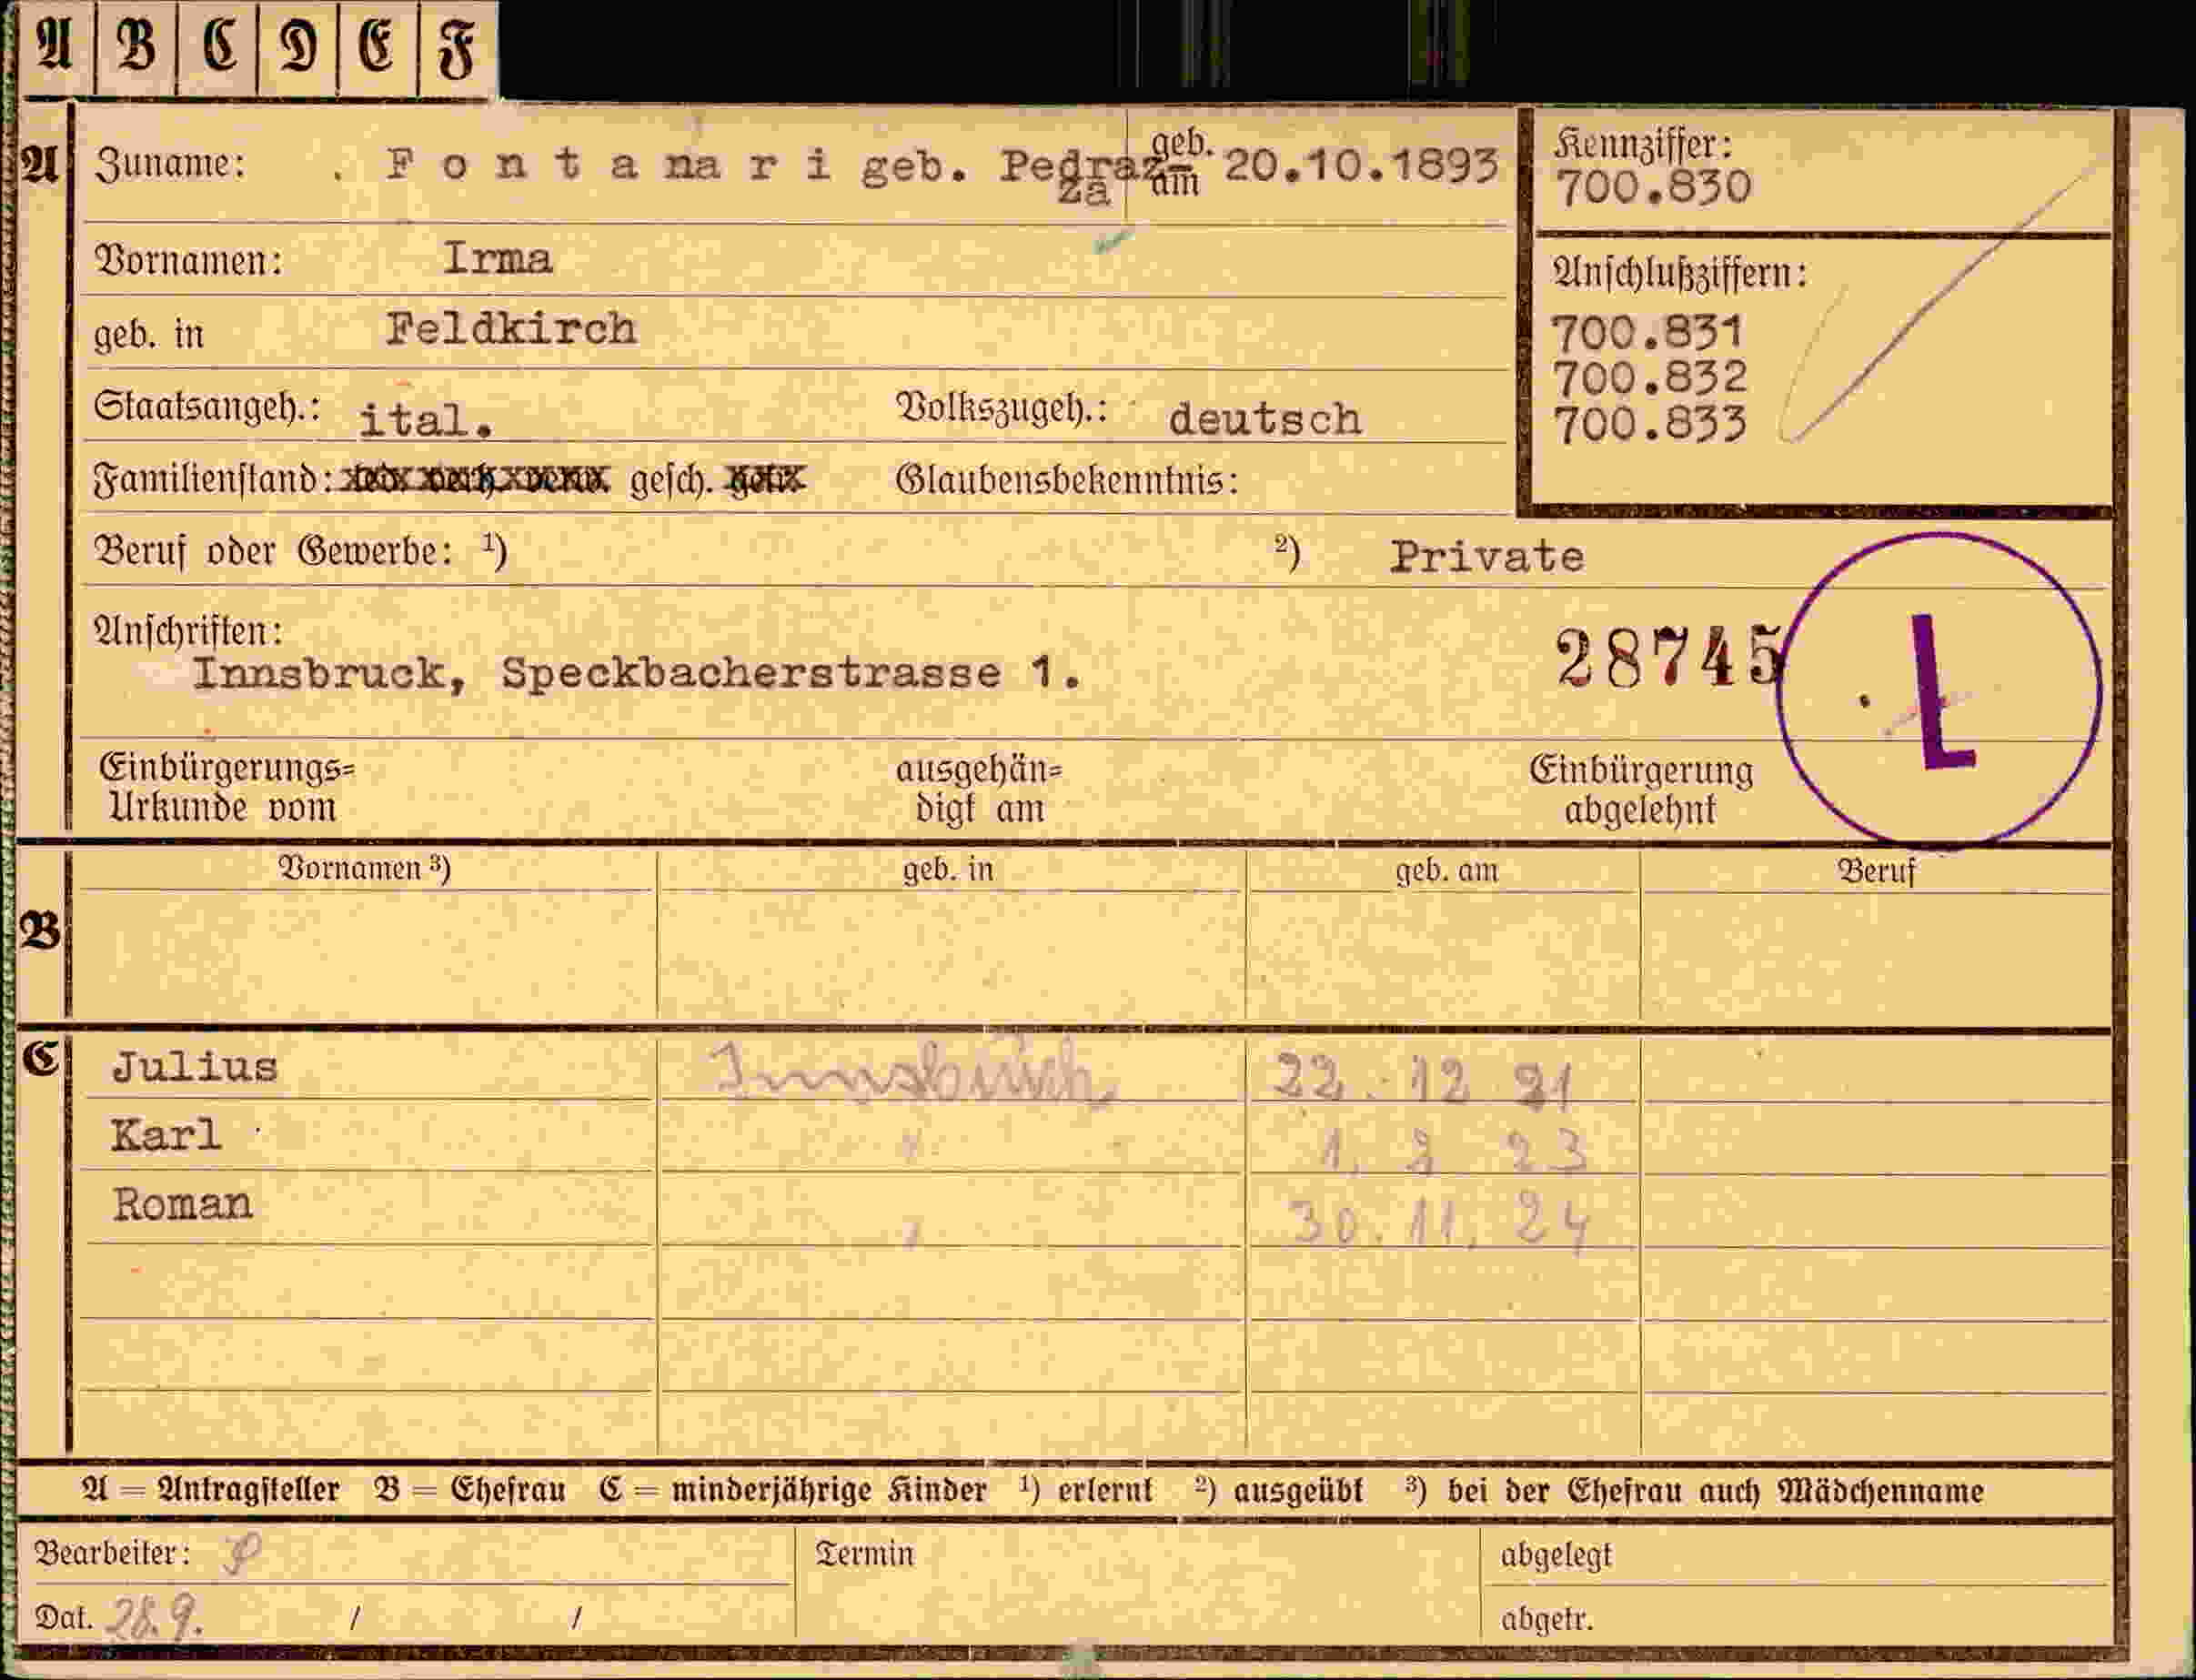 A B C D E F
A Zuname: . F o n t a na r i geb. Pedraz= geb. am 20.10.1893
za
Kennziffer:
700.830
Vornamen: Irma
geb. in Feldkirch
Anschlußziffern:
700.831
700.832
700.833
Staatsangeh.: ital. Volkszugeh.: deutsch
Familienstand: gesch. Glaubensbekenntnis:
Beruf oder Gewerbe: ¹) ²) Private
Anschriften:
Innsbruck, Speckbacherstrasse 1.
28745 L
Einbürgerungs= ausgehän= Einbürgerung
Urkunde vom digt am abgelehnt
Vornamen ³) geb. in geb. am Beruf
B
C Julius Innsbruck 22. 12 21
Karl " 1. 23
Roman " 30. 11. 24
A = Antragsteller B = Ehefrau C = minderjährige Kinder ¹) erlernt ²) ausgeübt ³) bei der Ehefrau auch Mädchenname
Bearbeiter: Termin abgelegt
Dat. 28.9. / / abgetr.